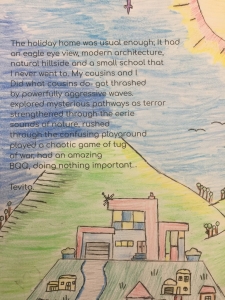 The holiday home was usual enough; It had
an eagle eye view, modern architecture,
natural hillside and a small school that
I never went to. My cousins and I
Did what cousins do- got thrashed
by powerfully aggressive waves.
explored mysterious pathways as terror
strengthened through the eerie
sounds of nature, rushed
through the confusing playground
played a chaotic game of tug
of war, had an amazing
BQQ, doing nothing important...
Tevita